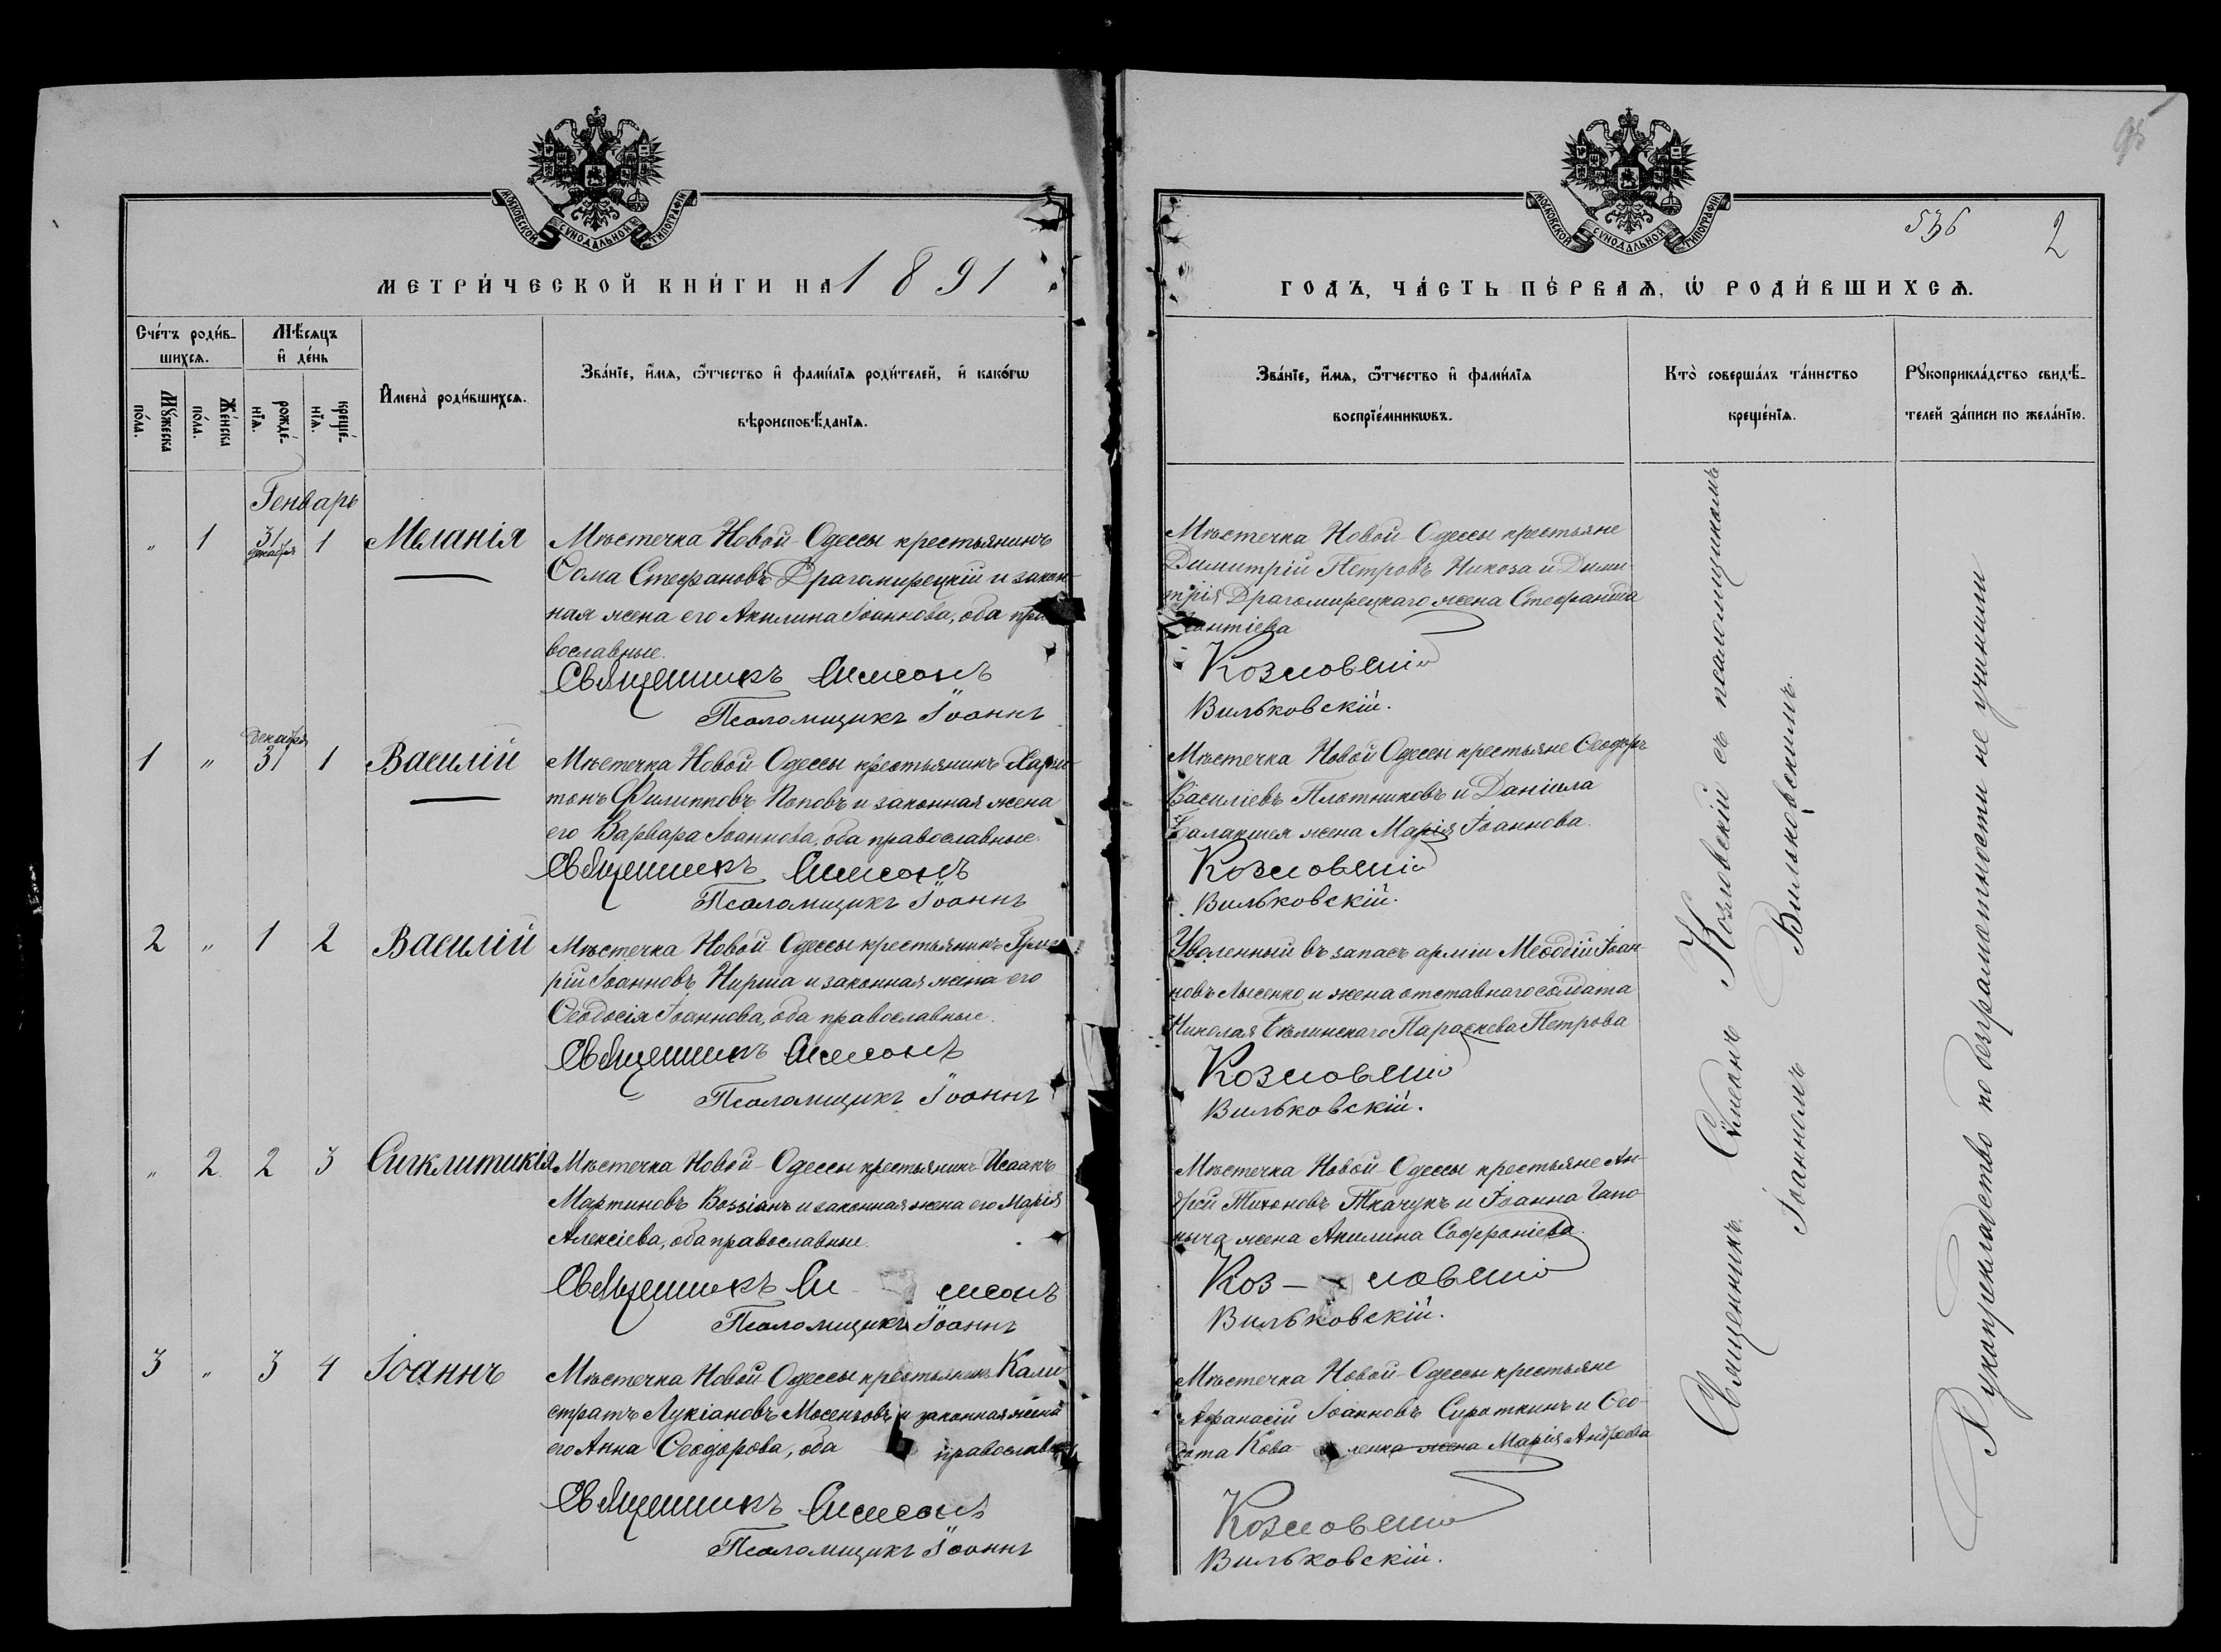 95
МОСКОВСКОЙ СѴНОДАЛЬНОЙ ТИПОГРАФІИ
МЕТРИ́ЧЕСКОЙ КНИ́ГИ НА 1891
Сче́тъ роди́в-
шихсѧ.
Мѣ́сѧцъ
и҆ де́нь
Мꙋ́жеска
по́ла.
Же́нска
по́ла.
рожде́-
нїѧ.
креще́-
нїѧ.
И҆мена̀ роди́вшихсѧ.
Зва́нїе, и҆́мѧ, ѻ҆́тчество и҆ фамі́лїѧ роди́телей, и҆ како́гѡ
вѣроисповѣ́данїѧ.
Генварь
" 1 31 декабря 1 Меланія
Мѣстечка Новой Одессы крестьянинъ
Ѳома Стефановъ Драгомирецкій и закон-
ная жена его Акилина Іоаннова, оба пра-
вославные.
Священникъ Симеонъ
Псаломщикъ Іоаннъ
1 " декабря 31 1 Василій
Мѣстечка Новой Одессы крестьянинъ Хари-
тонъ Филипповъ Поповъ и законная жена
его Варвара Іоаннова, оба православные.
Священникъ Симеонъ
Псаломщикъ Іоаннъ
2 " 1 2 Василій
Мѣстечка Новой Одессы крестьянинъ
рій Іоанновъ Кирша и законная жена его
Ѳеодосія Іоаннова, оба православные.
Священникъ Симеонъ
Псаломщикъ Іоаннъ
" 2 2 3 Сигклитикія
Мѣстечка Новой-Одессы крестьянинъ Исаакъ
Мартиновъ Возіанъ и законная жена его Марія
Алексіева, оба православные.
Священникъ Симеонъ
Псаломщикъ Іоаннъ
3 " 3 4 Іоаннъ
Мѣстечка Новой-Одессы крестьянинъ Кали-
стратъ Лукіановъ Мосензовъ и законная жена
его Анна Ѳеодорова, оба православные
Священникъ Симеонъ
Псаломщикъ Іоаннъ
МОСКОВСКОЙ СѴНОДАЛЬНОЙ ТИПОГРАФІИ
536 2
ГОДЪ, ЧА́СТЬ ПЕ́РВАѦ, Ѡ҆ РОДИ́ВШИХСѦ.
Зва́нїе, и҆́мѧ, ѻ҆́тчество и҆ фамі́лїѧ
воспрїе́мникѡвъ.
Кто̀ соверша́лъ та́инство
креще́нїѧ.
Рꙋкоприкла́дство свидѣ́-
телей за́писи по жела́нїю.
Мѣстечка Новой Одессы крестьяне
Димитрій Петровъ Никоза и Дими-
трія Драгомирецкаго жена Стефанида
Козловскій
Вильковскій.
Мѣстечка Новой Одессы крестьяне Ѳеодоръ
Василіевъ Плотниковъ и Даніила
Балакшея жена Марія Іоаннова.
Козловскій
Вильковскій.
Уволенный въ запасъ арміи Меѳодій Іоан-
новъ Лысенко и жена отставнаго солдата
Николая Бѣлинскаго Параскева Петрова
Козловскій
Вильковскій.
Мѣстечка Новой Одессы крестьяне Ан-
дрей Тихоновъ Ткачукъ и Іоанна Гапо-
ныча жена Акилина Софроніева.
Козловскій
Вильковскій.
Мѣстечка Новой-Одессы крестьяне
Аѳанасій Іоанновъ Сироткинъ и Ѳео-
дота Коваленка жена Марія Андреева
Козловскій
Вильковскій.
Священникъ Симеонъ Козловскій съ псаломщикомъ
Іоанномъ Вильковскимъ.
Рукоприкладство по безграмотности не учинили